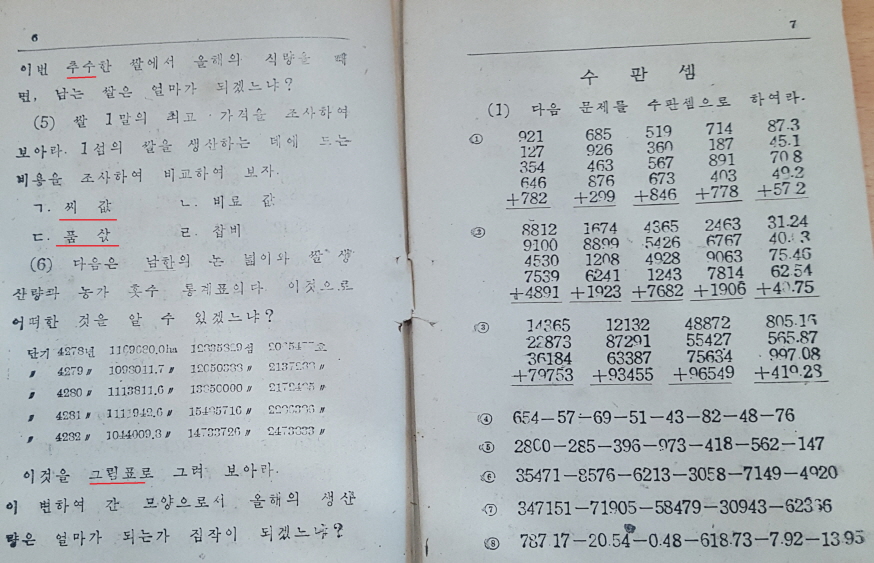 6
이번 추수한 쌀에서 올해의 식량을 빼
면, 남는 쌀은 얼마가 되겠느냐?
(5) 쌀 1말의 최고 가격을 조사하여
보아라. 1섬의 쌀을 생산하는 데에 드는
비용을 조사하여 비교하여 보자.
ㄱ. 씨 값 ㄴ. 비료 값
ㄷ. 품 삯 ㄹ. 잡비
(6) 다음은 남한의 논 넓이와 쌀 생
산량과 농가 홋수 통계표의다 이것으로
어떠한 것을 알 수 있겠느냐?
단기 4278년
〃 4279〃 〃
〃 4280〃 1113811.6〃 〃
〃 4281〃 〃 15485716〃 〃
〃 4282〃 〃 14733726〃 〃
이것을 그림표로 그려 보아라.
이 변하여 간 모양으로서 올해의 생산
량은 얼마가 되는가 짐작이 되겠느냐?
7
수 판 셈
(1) 다음 문제를 수판셈으로 하여라.
① 921 685 519 714 87.3
127 926 360 187 45.1
354 463 567 891 70.8
646 876 673 403 49.2
+782 +299 +846 +778 +57.2
② 8812 1674 4365 2463 31.24
9100 8899 5426 6767
4530 1208 4928 9063 75.46
7539 6241 1243 7814 62.54
+4891 +1923 +7682 +1906 +40.75
③ 14365 12132 48872 805.16
22873 87291 55427 565.87
36184 63387 75634 997.08
+79753 +93455 +96549 +419.28
④ 654−57−69−51−43−82−48−76
⑤ 2800−285−396−973−418−562−147
⑥ 35471−8576−6213−3058−7149−4920
⑦ 347151−71905−58479−30943−62366
⑧ 787.17−20.54−0.48−618.73−7.92−13.95